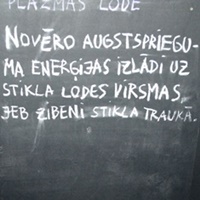 PLAZMAS LODE
NOVĒRO AUGSTSPRIEGU-
MA ENERĢIJAS IZLĀDI UZ
STIKLA LODES VIRSMAS,
JEB ZIBENI STIKLA TRAUKĀ.